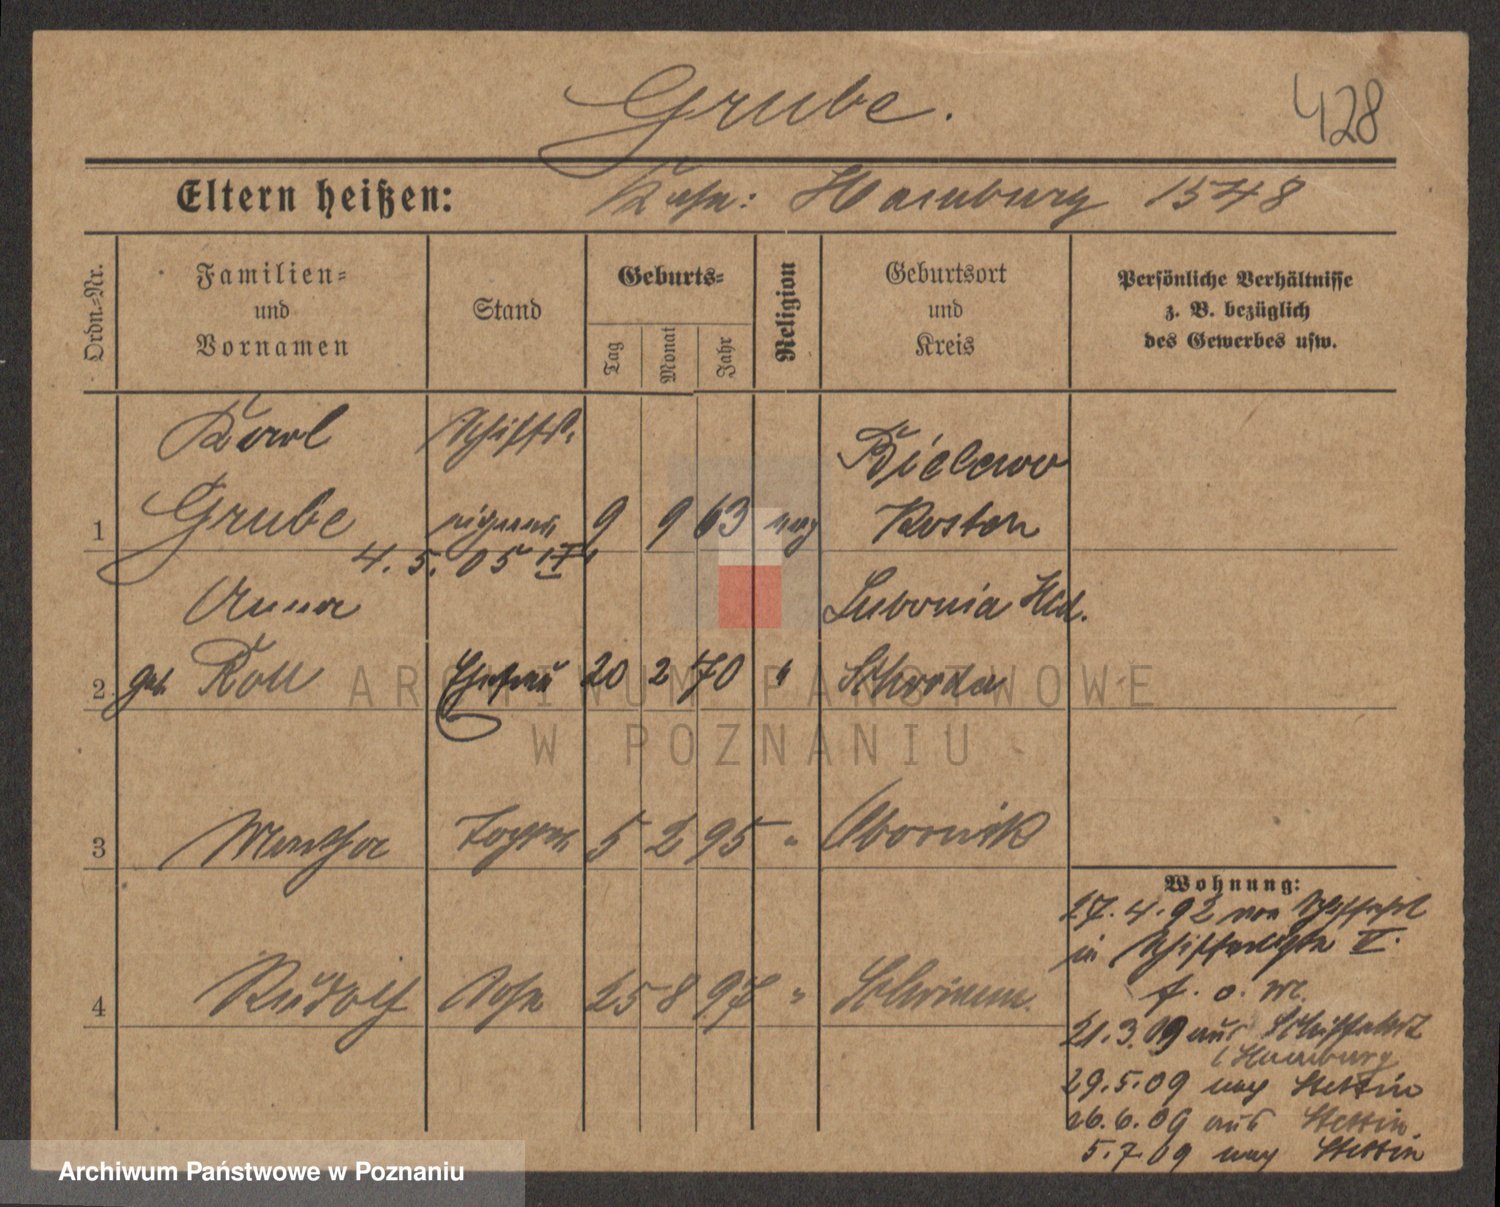 Grube.
428
Eltern heißen:
Kahn: Hamburg 1548
Ordn.-Nr.
Familien-
und
Vornamen
Stand
Geburts-
Tag
Monat
Jahr
Religion
Geburtsort
und
Kreis
Persönliche Verhältnisse
z. B. bezüglich
des Gewerbes usw.
Karl Schiffs-
Bielewo
1 Grube eigner 9 9 63 evg Kosten
4. 5. 05 II
Anna
Lubonia Hld.
2 geb. Roll Ehefrau 20 2 70 " Schroda
3 Martha Tochter 5 2 95 " Obornik
4 Rudolf Sohn 25 8 97 " Schrimm.
Wohnung:
27. 4. 92 von
in II.
f. o. W.
21. 3. 09 aus Schiffahrt
(Hamburg
29. 5. 09 nach Stettin
26. 6. 09 aus Stettin.
5. 7. 09 nach Stettin
ARCHIWUM PAŃSTWOWE
W POZNANIU
Archiwum Państwowe w Poznaniu